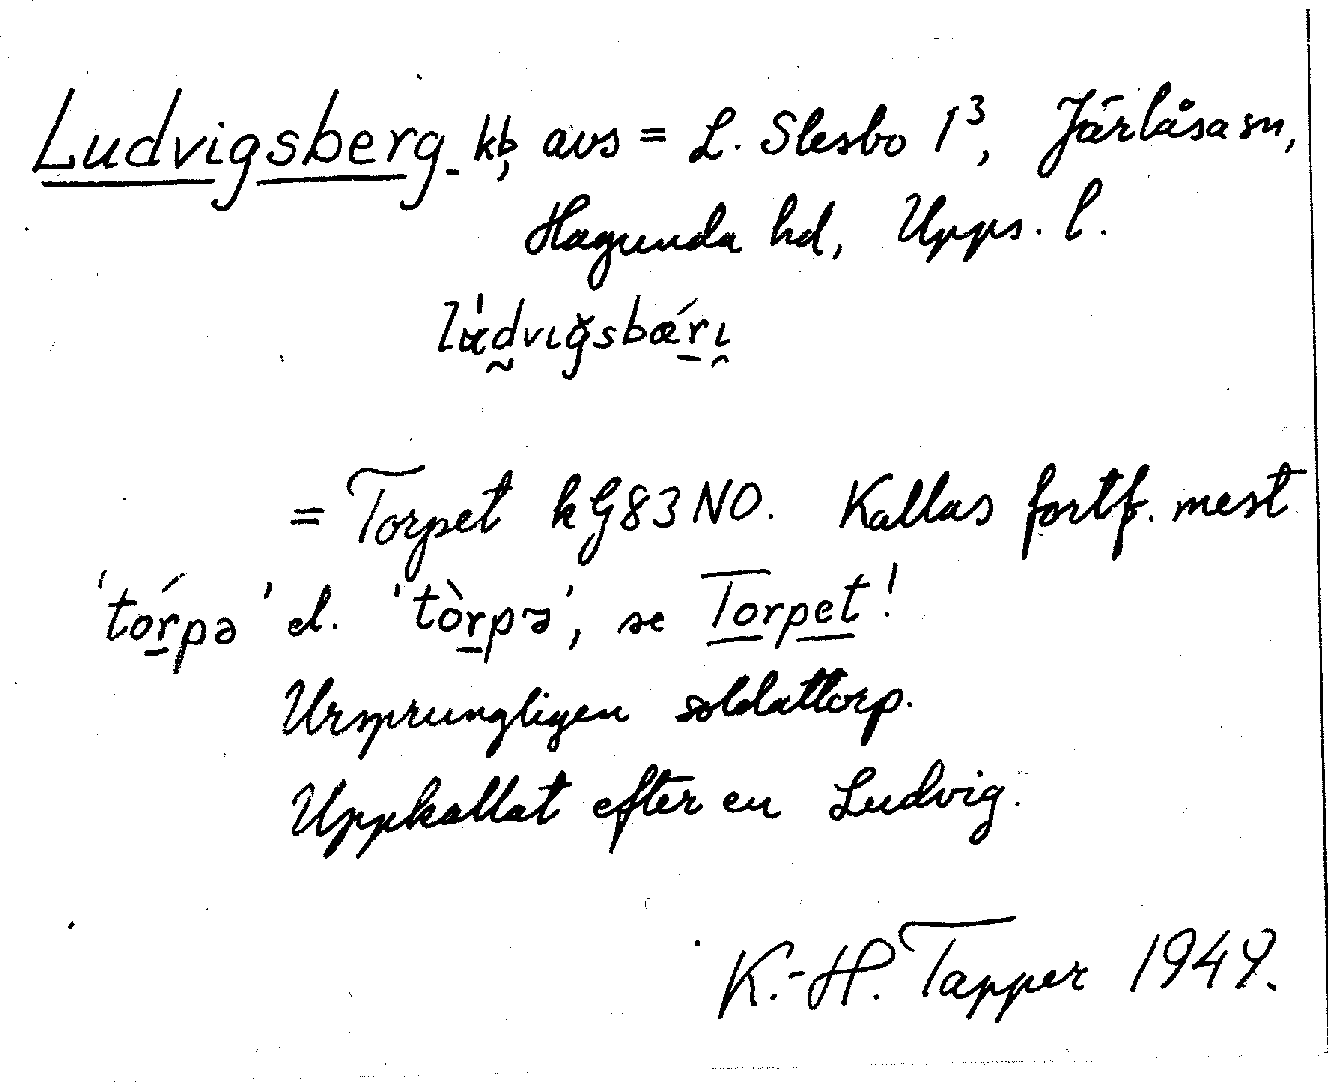 Ludvigsberg. kb, avs = L. Slesbo 1³, Järlåsa sn,
Hagunda hd, Upps. l.
= Torpet kG83NO. Kallas fortf. mest
'tórpə' el. 'tòrpə', se Torpet!
Ursprungligen soldattorp.
Uppkallat efter en Ludvig.
K.-H. Tapper 1949.